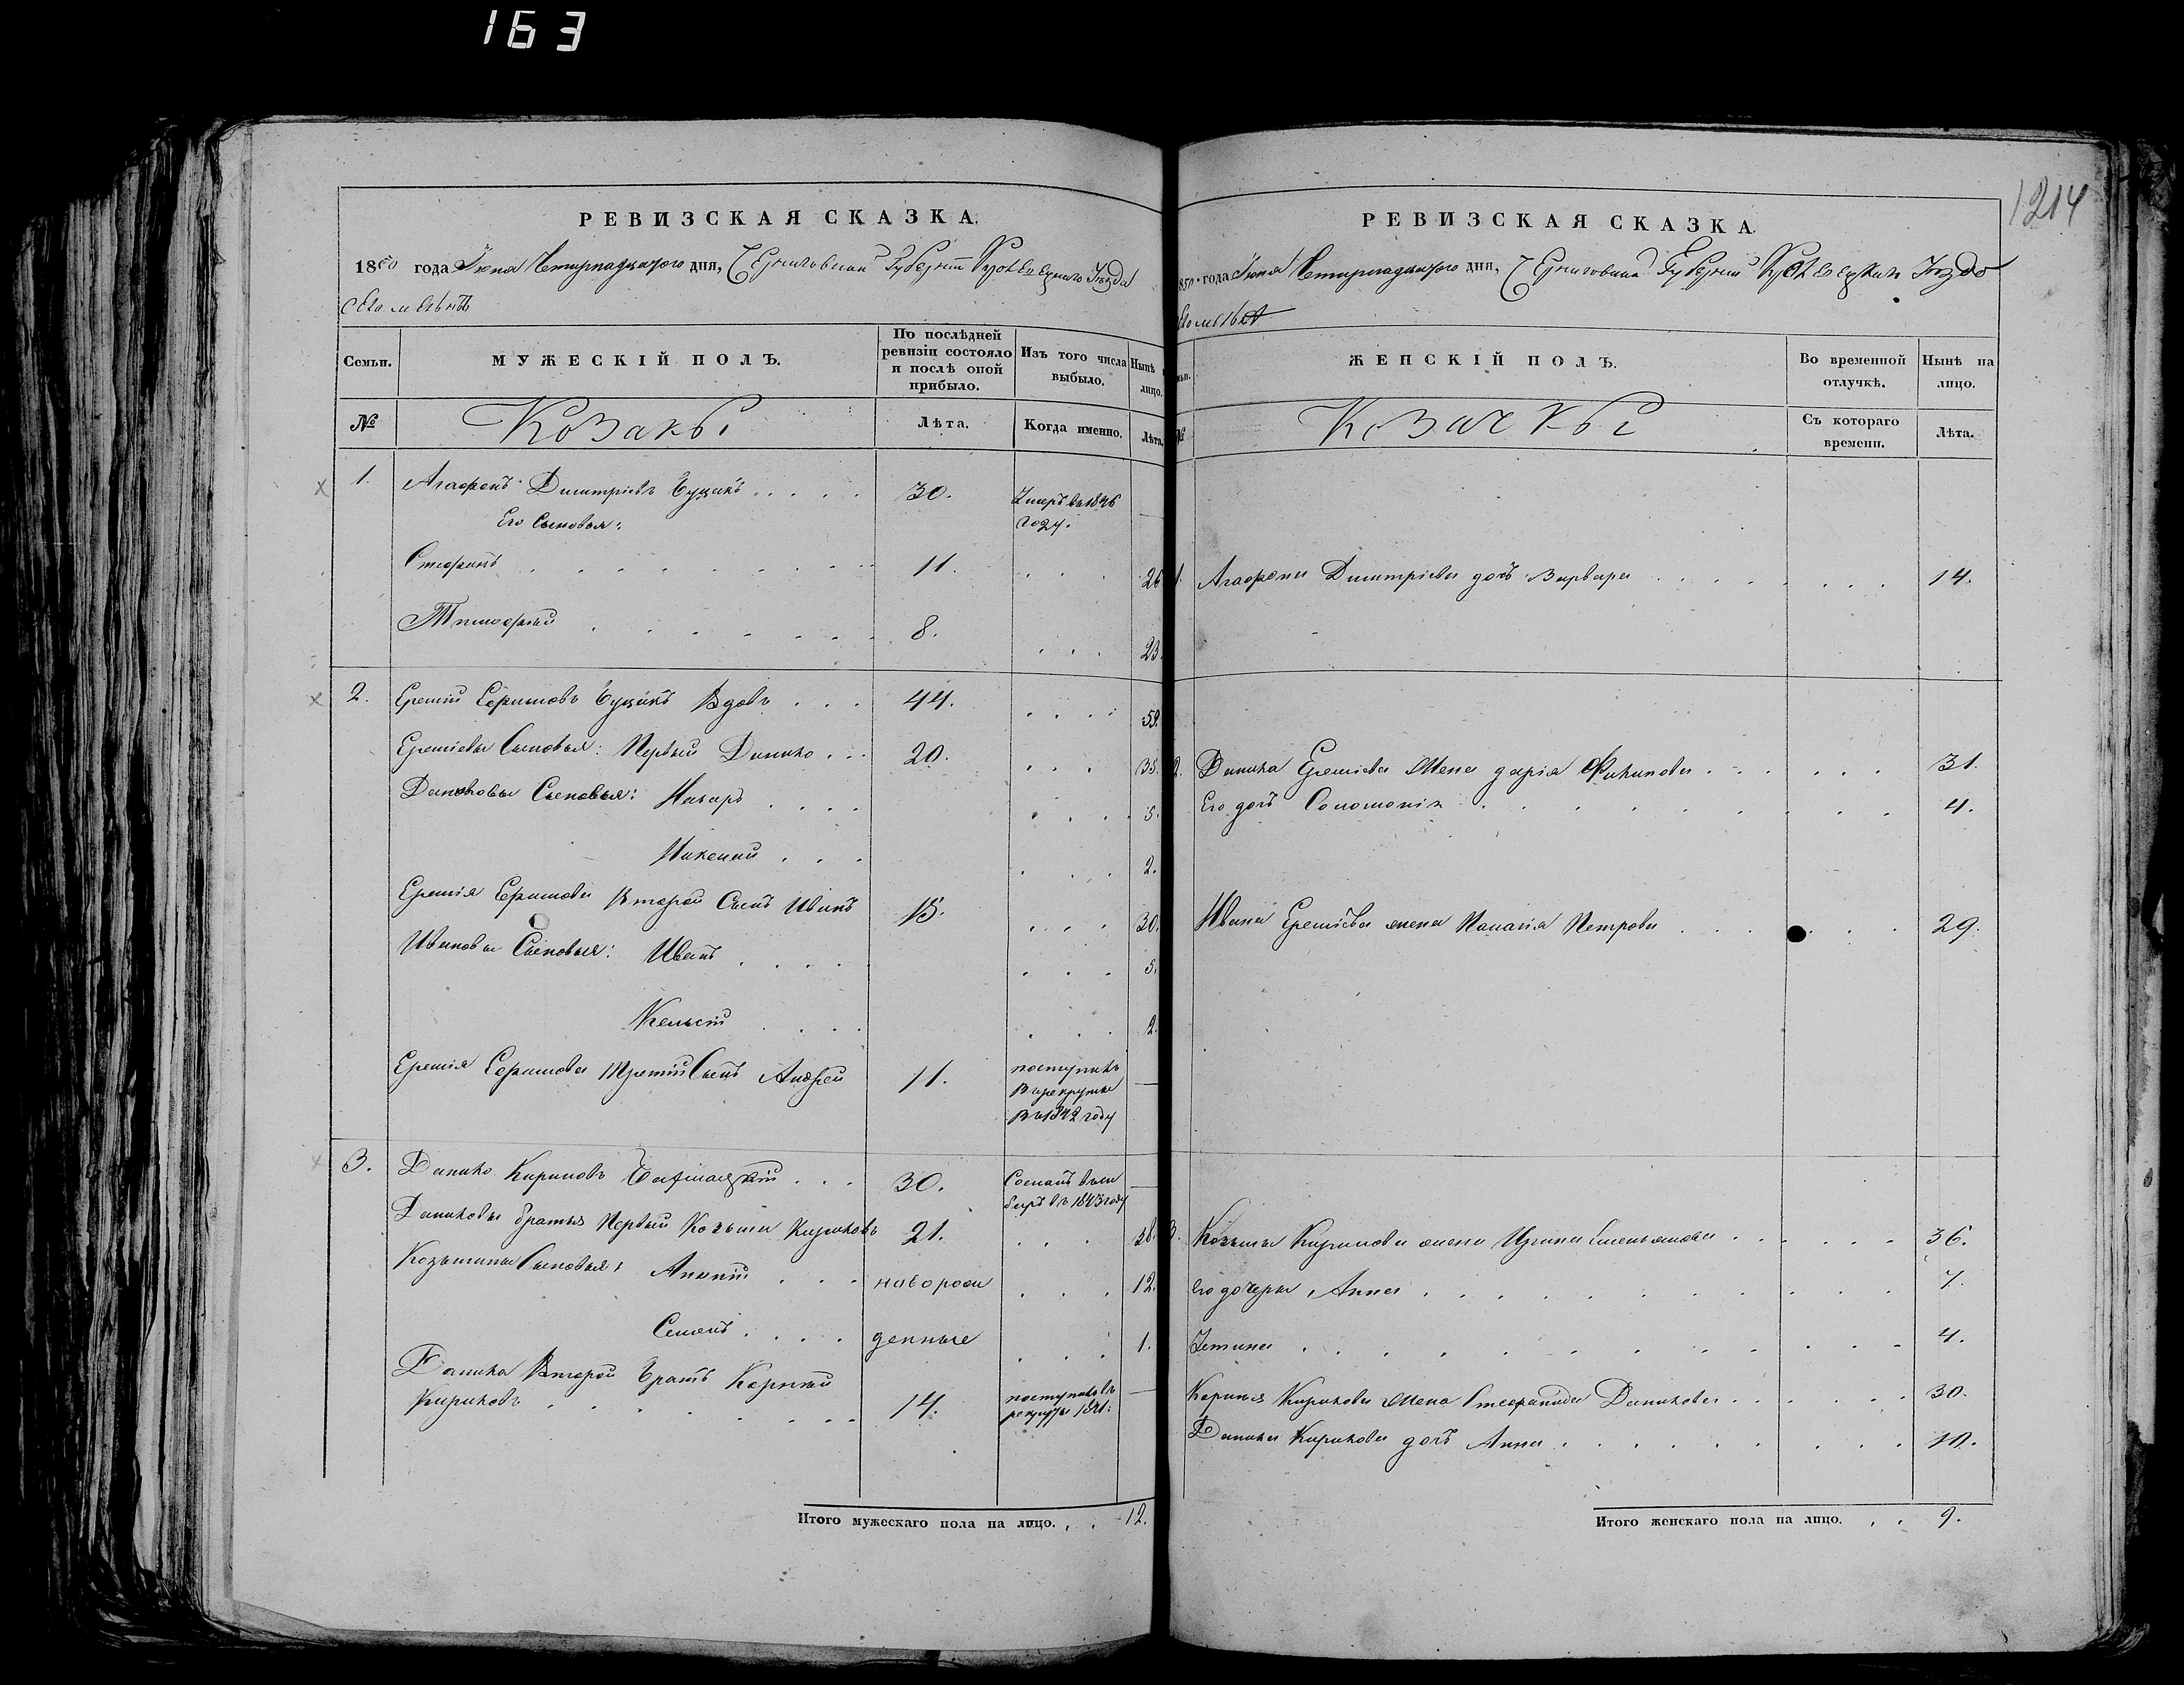 163
РЕВИЗСКАЯ СКАЗКА.
1850 года Іюня Четырнадцатого дня, Черниговской Губерніи Уѣзда
МУЖЕСКІЙ ПОЛЪ.
Семьи.
По послѣдней ревизіи состояло и послѣ оной прибыло.
Изъ того числа выбыло.
Нынѣ на лицо.
№
Козаки
Лѣта.
Когда именно.
Лѣта.
1. Агафонъ Димитріевъ . . . . . 30. Умеръ въ 1846 году. —
Его Сыновья:
Стефанъ . . . . . . . 11. . . . 26
Тимофей . . . . . . . 8. . . . 23.
2. Еремій Вдовъ . . . 44. . . . . 59.
Ереміевы Сыновья: Первый Данило . . . 20. . . . 35.
Даниловы Сыновья: Назаръ . . . . . . . . 5.
. . . . . . 2.
Еремія Второй Сынъ Иванъ 15. . . . 30.
Ивановы Сыновья: Иванъ . . . . . . . 5.
. . . . . . 2.
Еремія Третій Сынъ Андрей 11. поступилъ в рекруты въ 1842 году —
3. Данило Кириловъ . . . 30. Сосланъ въ 1843 году —
Даниловы братья Первый Козьма Кириловъ 21. . . . 38.
Козьмины Сыновья: . . . новорож . . . 12.
Семенъ . . . . денные . . . 1.
Данила Второй Братъ Корнѣй
Кириловъ . . . . . . . 14. поступилъ въ рекруты 1841: —
Итого мужескаго пола на лицо. . . 12.
1214
РЕВИЗСКАЯ СКАЗКА.
1850 года Іюня Четырнадцатого дня, Черниговской Губерніи
ЖЕНСКІЙ ПОЛЪ.
Во временной отлучкѣ.
Нынѣ на лицо.
№
Козачки
Съ котораго времени.
Лѣта.
1. Агафона Димитріева дочь Варвара . . . . . . . 14.
2. Данила Ереміева жена Дарія . . . . . . 31.
Его дочь Соломонія . . . . . . . . 4.
Ивана Ереміева жена Петрова . . . . . . 29.
3. Козьмы Кирилова жена Ирина Емельянова . . . . . . 36.
его дочери, Анна . . . . . . . . . 7.
. . . . . . . . . . 4.
Корнѣя Кирилова жена Стефанида Данилова . . . . . 30.
Данила Кирилова дочь Анна . . . . . . . . . 10.
Итого женскаго пола на лицо. . . 9.